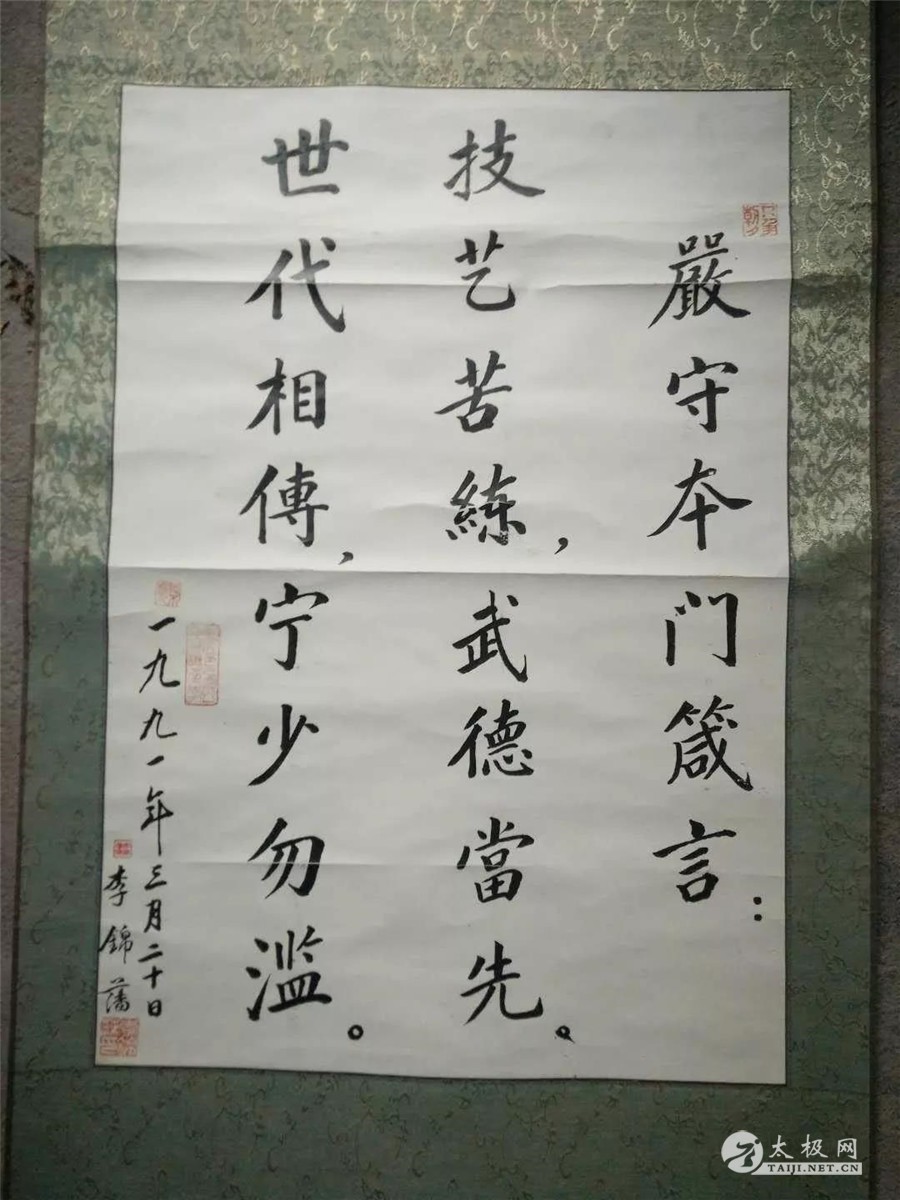 嚴守本门箴言：
技艺苦練，武德當先。
世代相傳，宁少勿滥。
一九九一年三月二十日
李錦藩
太极网
TAIJI.NET.CN